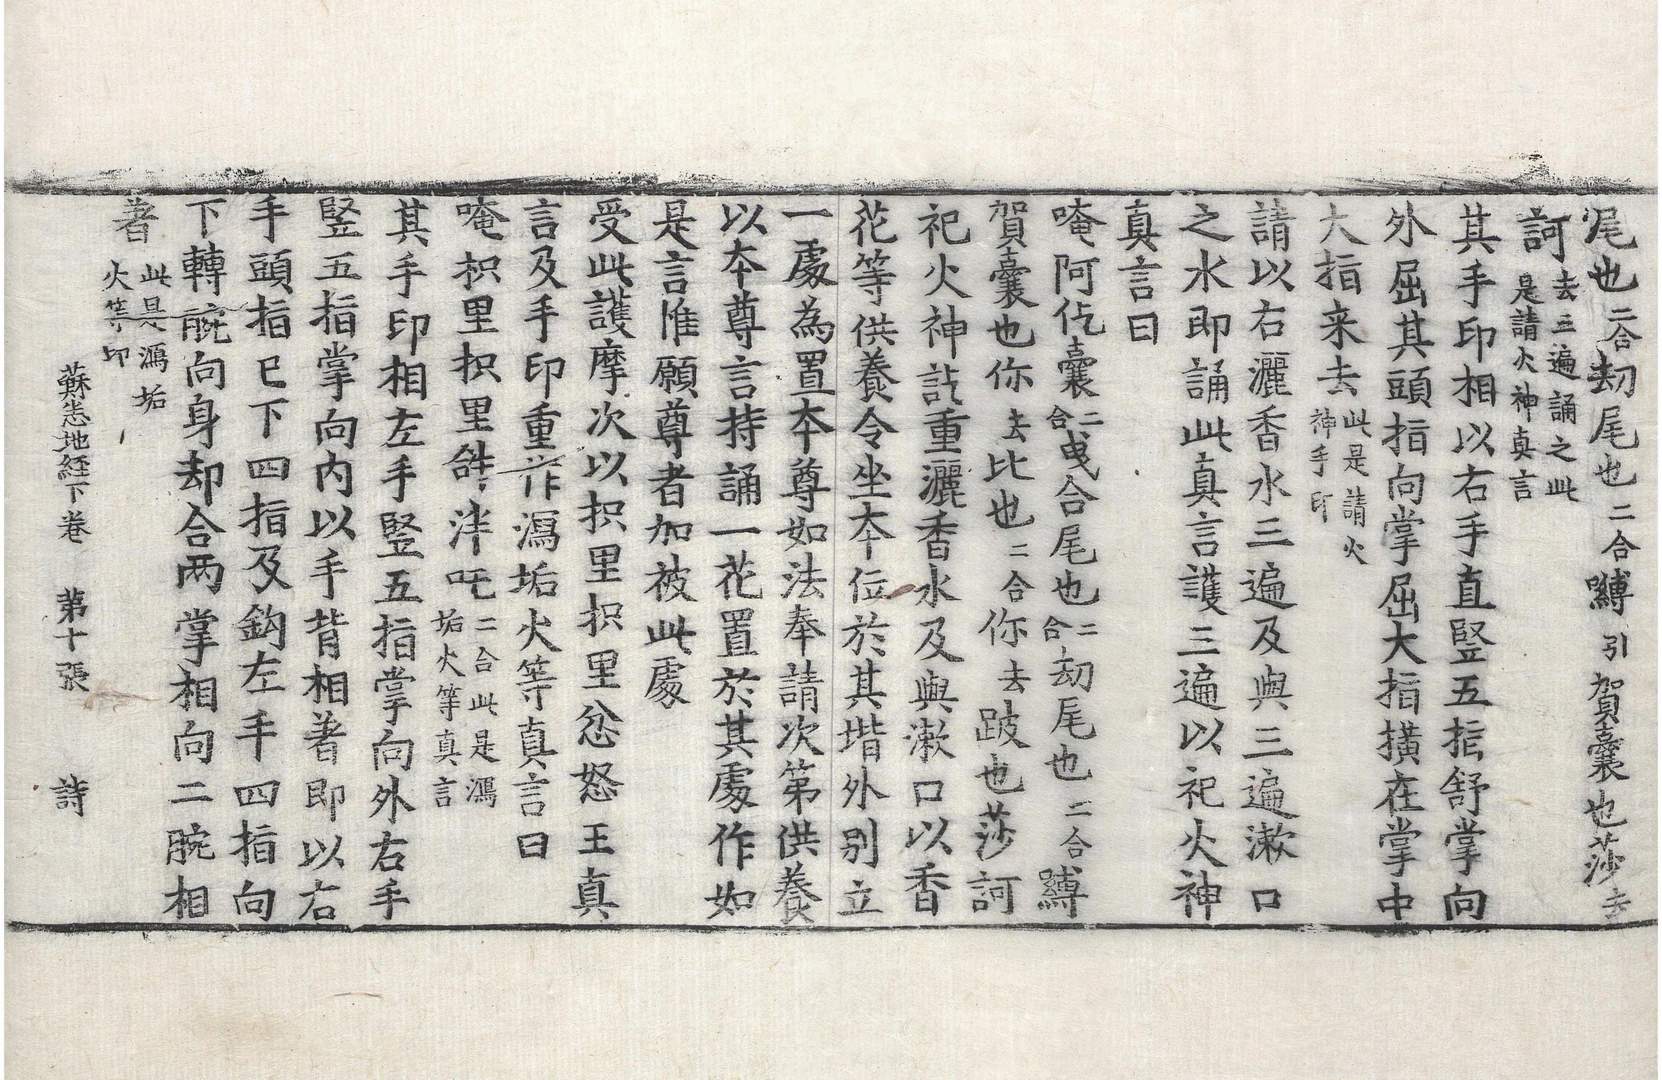 尾也二合刼尾也二合嚩引賀囊也莎去
訶去三遍誦之此是請火神真言
其手印相以右手直竪五指舒掌向
外屈其頭指向掌屈大指横在掌中
大指来去此是請火神手印
請以右灑香水三遍及與三遍漱口
之水即誦此真言護三遍以祀火神
真言曰
唵阿仡囊二合曵合尾也二合刼尾也二合嚩
賀囊也你去比也二合你去跛也莎訶
祀火神訖重灑香水及與漱口以香
花等供養令坐本位於其堦外别立
一處為置本尊如法奉請次第供養
以本尊言持誦一花置於其處作如
是言惟願尊者加被此處
受此護摩次以枳里枳里忿怒王真
言及手印重作瀉垢火等真言曰
唵枳里枳里 泮吒二合此是瀉垢火等真言
其手印相左手竪五指掌向外右手
竪五指掌向内以手背相著即以右
手頭指已下四指及鈎左手四指向
下轉腕向身却合两掌相向二腕相
著此是瀉垢火等印
蘇悉地経下卷 第十張 詩